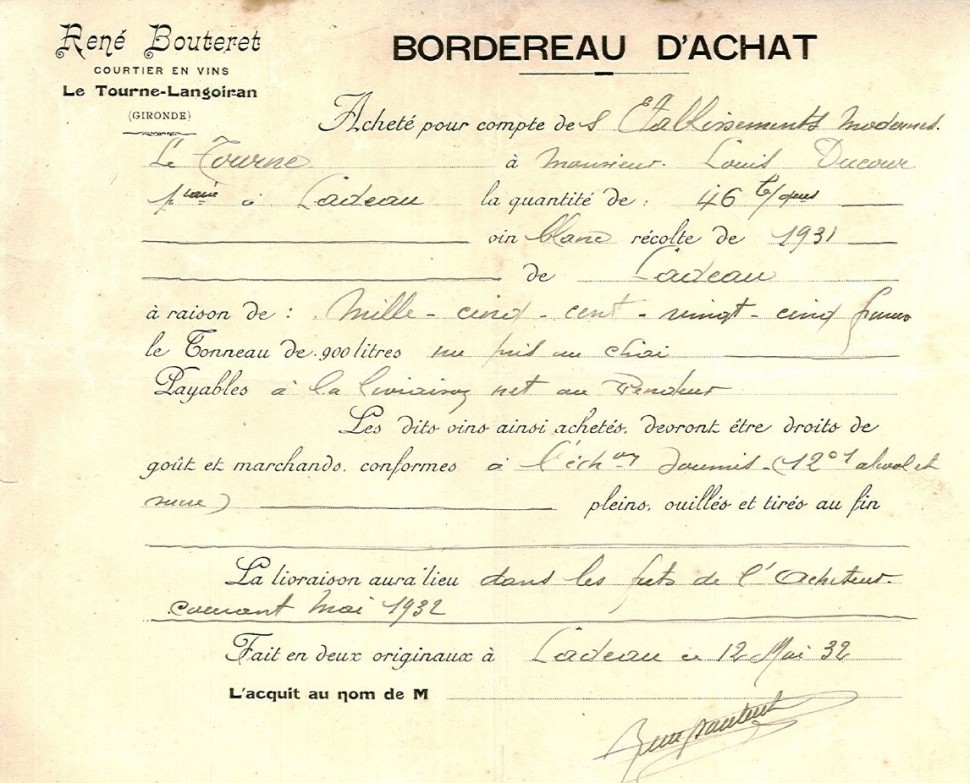 René Bouteret
COURTIER EN VINS
Le Tourne-Langoiran
(GIRONDE)
BORDEREAU D'ACHAT
Acheté pour compte des Etablissements Modernes.
Le Tourne à Monsieur. Louis Ducour
à Ladeau la quantité de : 46
vin blanc récolte de 1931
de Ladeau
à raison de : Mille - cinq - cent - vingt - cinq francs
le Tonneau de 900 litres nu pris au chai
Payables à la livraison net au Vendeur
Les dits vins ainsi achetés, devront être droits de
goût et marchands, conformes à l'échon soumis - (12°1 alcool et
sucre) pleins, ouillés et tirés au fin
La livraison aura lieu dans les futs de l'Acheteur
courant Mai 1932
Fait en deux originaux à Ladeau le 12 Mai 32
L'acquit au nom de M